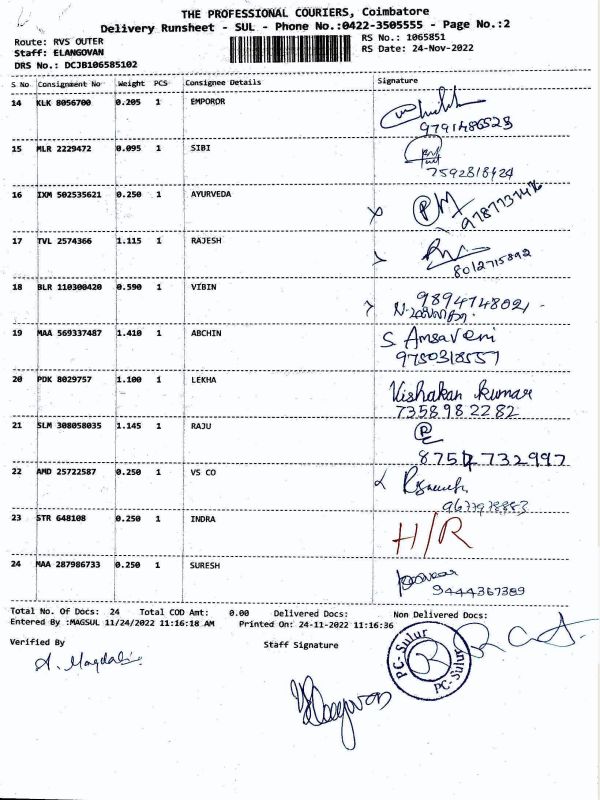 THE PROFESSIONAL COURIERS, Coimbatore
Delivery Runsheet - SUL - Phone No.:0422-3505555 - Page No.:2
Route: RVS OUTER
RS No.: 1065851
Staff: ELANGOVAN
RS Date: 24-Nov-2022
DRS No.: DCJB106585102
S No Consignment No Weight PCS Consignee Details Signature
14 KLK 8056700 0.205 1 EMPOROR
9791486523
15 MLR 2229472 0.095 1 SIBI
7592818424
16 IXM 502535621 0.250 1 AYURVEDA
PM
17 TVL 2574366 1.115 1 RAJESH
8012715892
18 BLR 110300420 0.590 1 VIBIN
9894748021
19 MAA 569337487 1.410 1 ABCHIN S Amsaveni
9750318557
20 PDK 8029757 1.100 1 LEKHA Vishakan kumar
7358982282
21 SLM 308058035 1.145 1 RAJU
22 AMD 25722587 0.250 1 VS CO
23 STR 648108 0.250 1 INDRA H/R
24 MAA 287986733 0.250 1 SURESH
9444367389
Total No. Of Docs: 24 Total COD Amt: 0.00 Delivered Docs: Non Delivered Docs:
Entered By :MAGSUL 11/24/2022 11:16:18 AM Printed On: 24-11-2022 11:16:36
Verified By
Staff Signature
A. Magdali
PC-Sulur
PC-Sulur